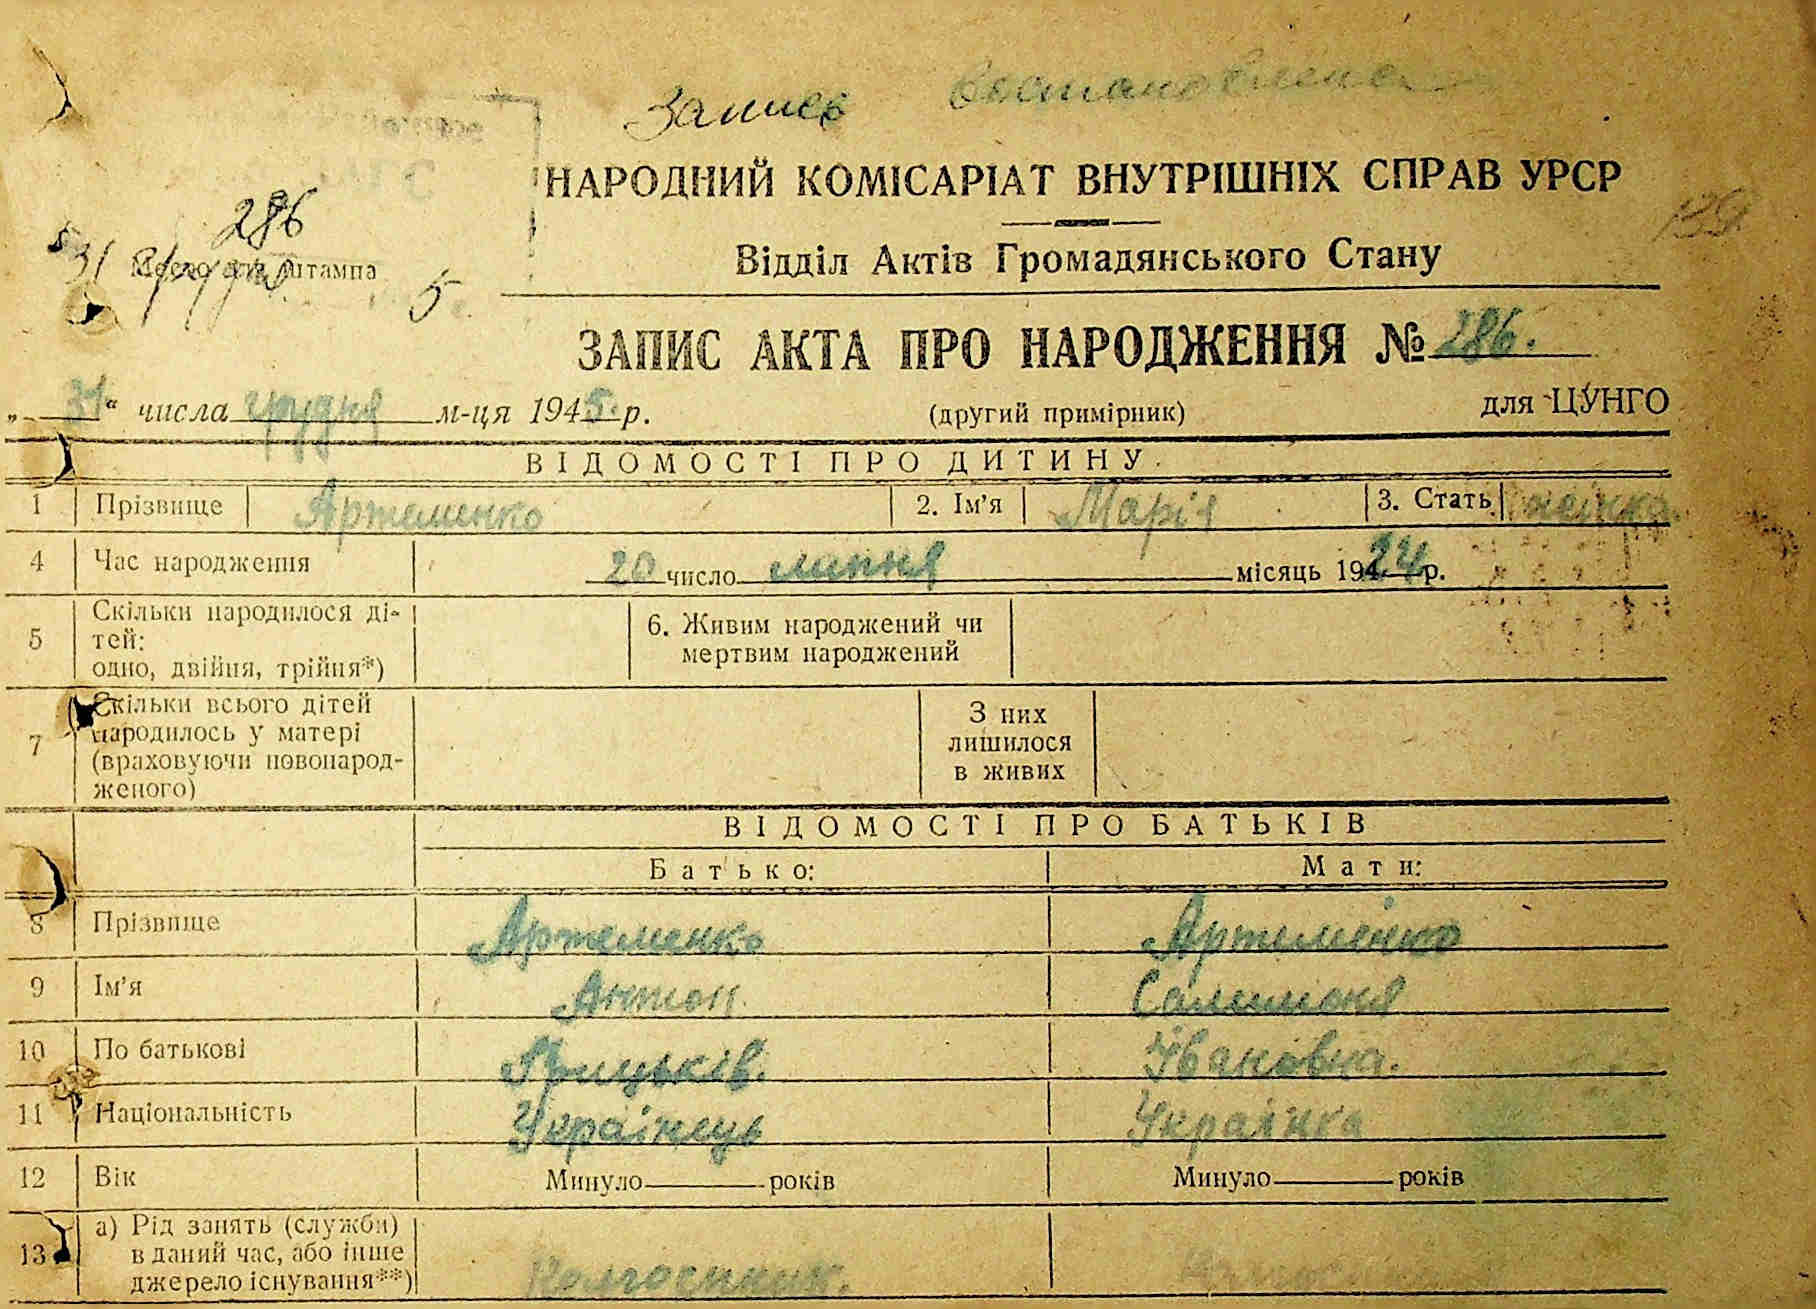 Запись Востановлена
НАРОДНИЙ КОМІСАРІАТ ВНУТРІШНІХ СПРАВ УРСР
139
286
Відділ Актів Громадянського Стану
31 грудня 5
Місце для штампа
ЗАПИС АКТА ПРО НАРОДЖЕННЯ № 286.
„ 31 “ числа грудня м-ця 1945 р. (другий примірник) для ЦУНГО
ВІДОМОСТІ ПРО ДИТИНУ
1 Прізвище Артеменко 2. Ім'я Марія 3. Стать жінка
4 Час народження 20 число липня місяць 194 24 р.
5 Скільки народилося ді-
тей:
одно, двійня, трійня*)
6. Живим народжений чи
мертвим народжений
7 Скільки всього дітей
народилось у матері
(враховуючи новонарод-
женого)
З них
лишилося
в живих
ВІДОМОСТІ ПРО БАТЬКІВ
Батько: Мати:
8 Прізвище Артеменко Артеменко
9 Ім'я Антон Салимоня
10 По батькові Грицьків. Івановна.
11 Національність Українець Українка
12 Вік Минуло років Минуло років
13 а) Рід занять (служби)
в даний час, або інше
джерело існування**)
Колгоспник.